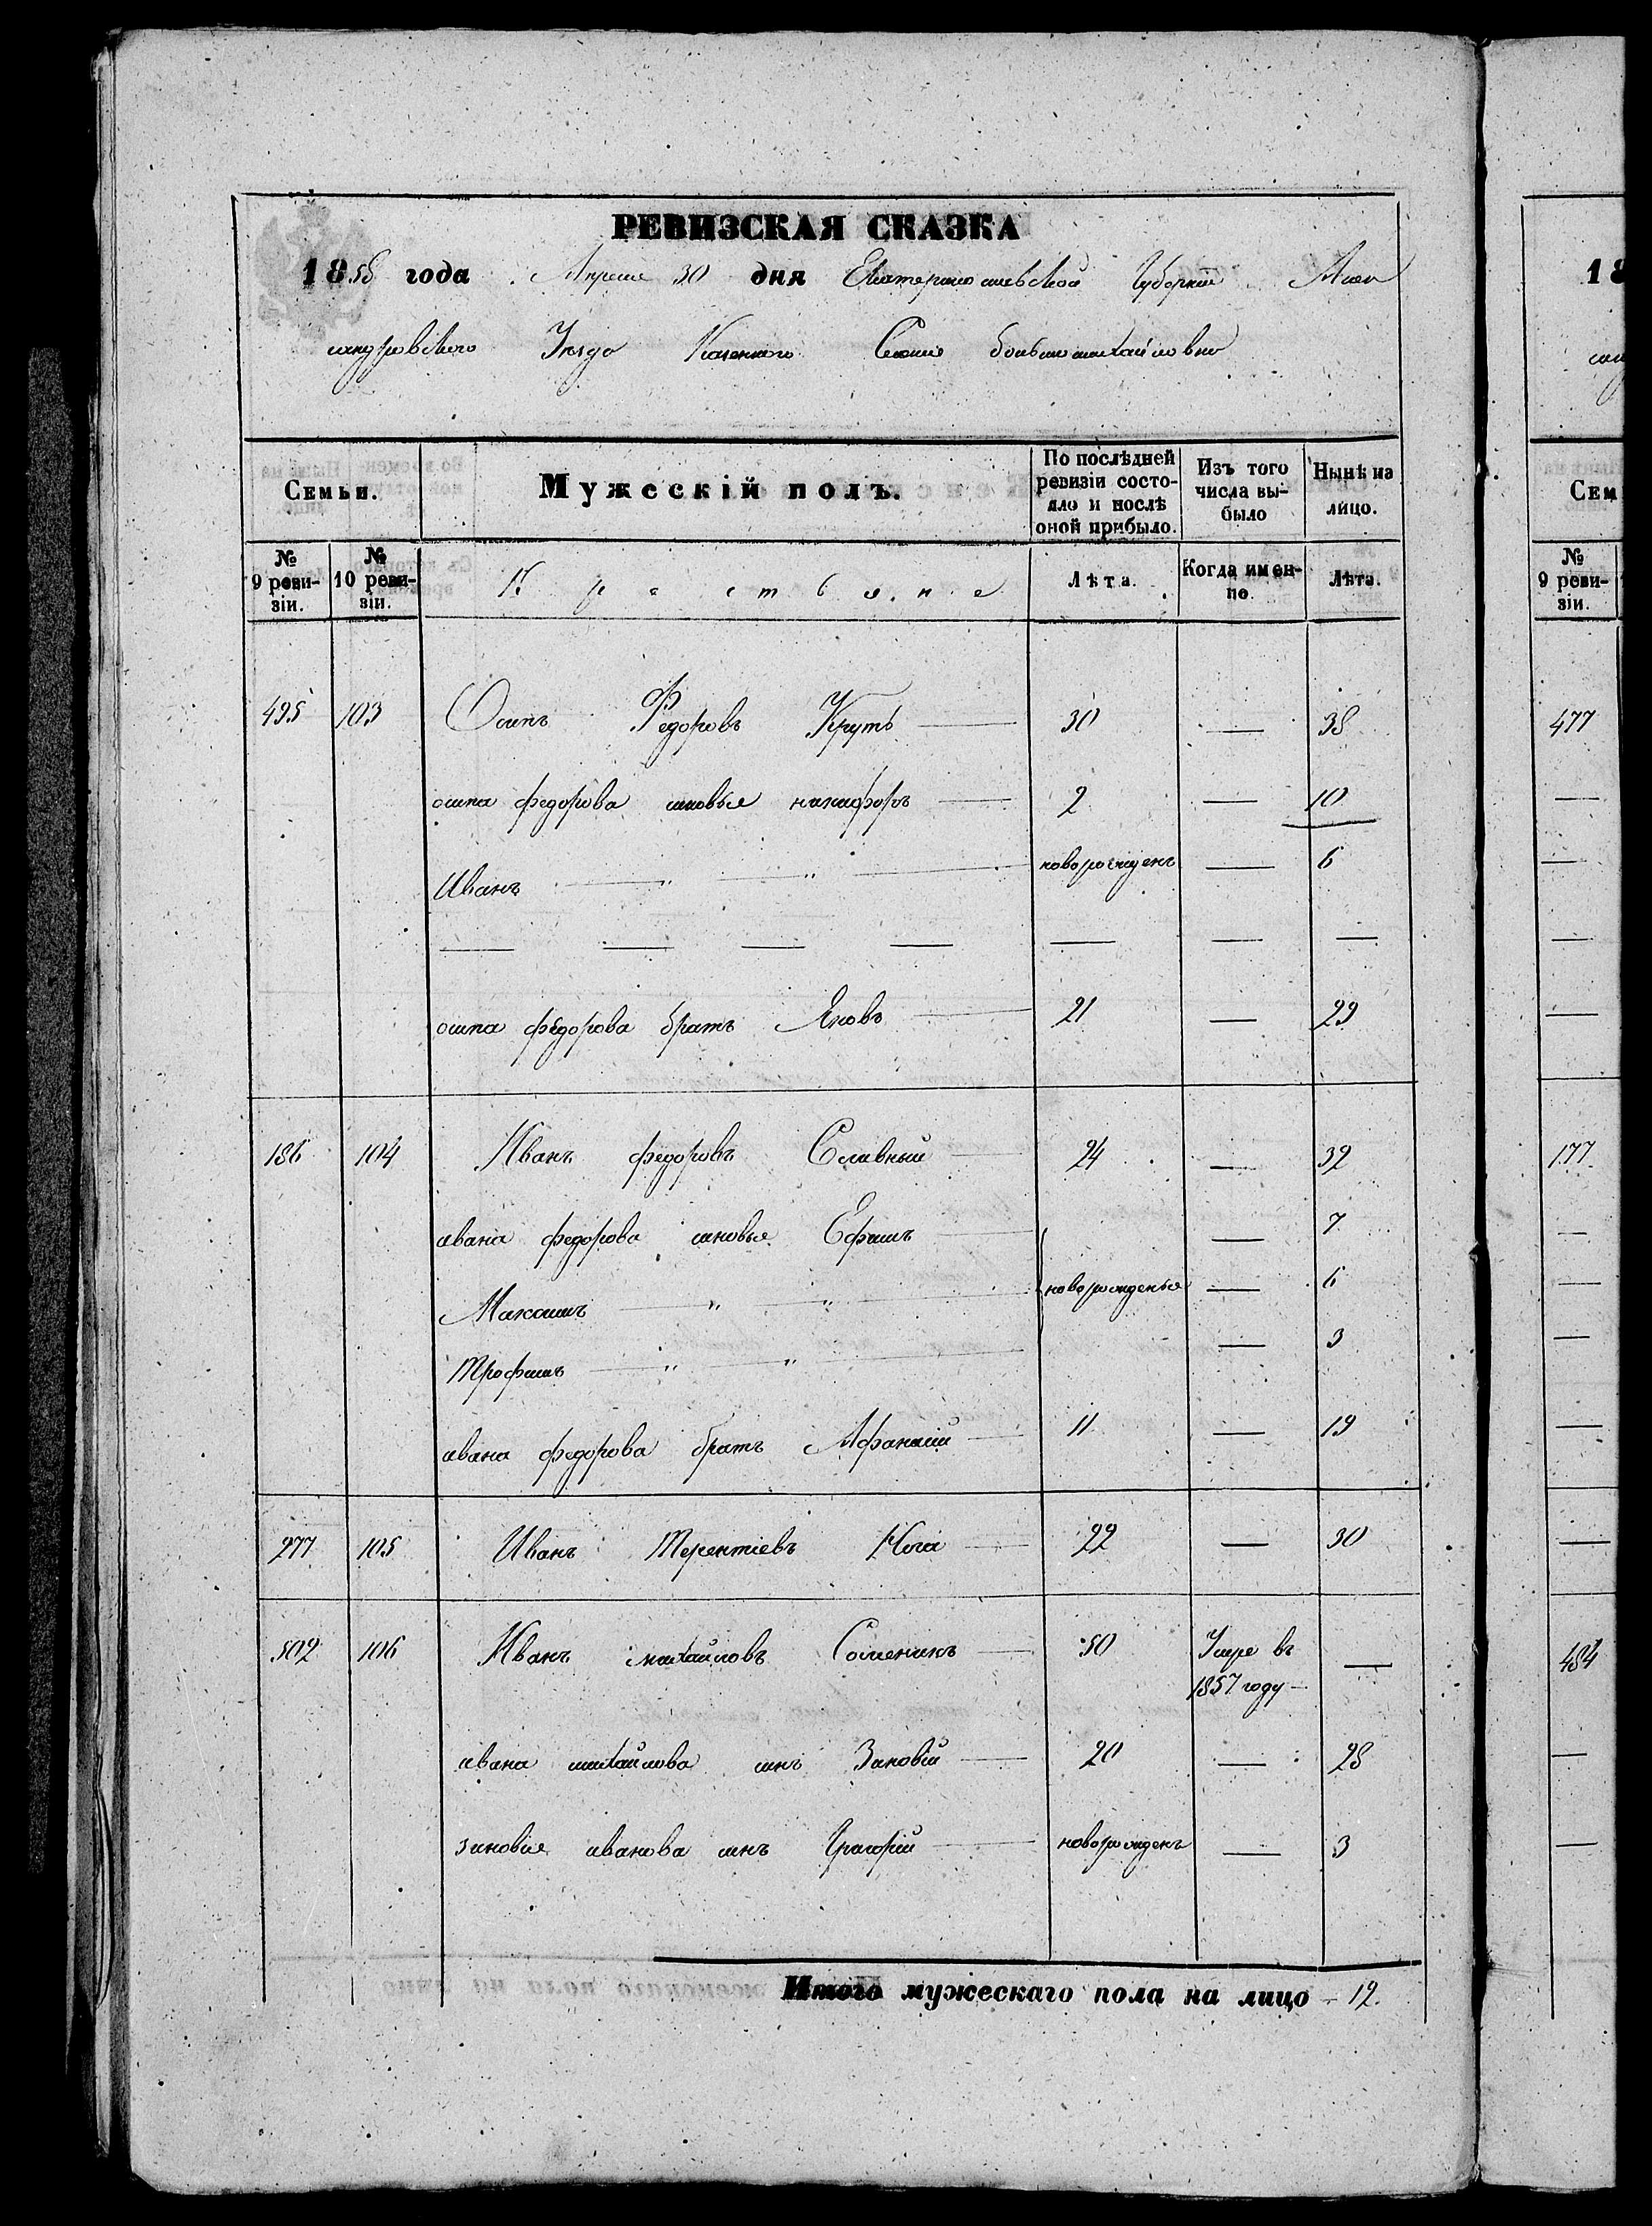 РЕВИЗСКАЯ СКАЗКА
1858 года Апреля 30 дня Екатеринославской Губернии Алек
сандровскаго Уезда Казеннаго Селения большомихайловки
Семьи. Мужескій полъ. По послѣдней ревизіи состояло и послѣ оной прибыло. Изъ того числа выбыло Нынѣ на лицо.
№ 9 ревизіи. № 10 ревизіи. Крестьяне Лѣта. Когда именно. Лѣта.
495 103 Осипъ Федоровъ Круть — 30 — 38
осипа федорова сыновья никифоръ — 2 — 10
Иванъ — " — " — новорожденъ — 6
— — — — — — —
осипа федорова братъ Яковъ — 21 — 29
186 104 Иванъ федоровъ Славный — 24 — 32
ивана федорова сыновья Ефимъ — — 7
Максимъ — " — " — новорожденые — 6
Трофимъ — " — " — — 3
ивана федорова братъ Афанасий — 11 — 19
277 105 Иванъ Терентіевъ Нога — 22 — 30
502 106 Иванъ михайловъ — 50 Умре въ 1857 году — —
ивана михайлова сынъ Зиновій — 20 — 28
зиновія иванова сынъ Григорій — новорожденъ — 3
Итого мужескаго пола на лицо — 12.
18
Сем
№ 9 ревизіи.
477
—
—
—
—
177
—
—
—
—
—
484
—
—